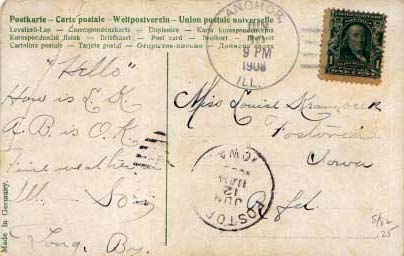 Postkarte - Carte postale - Weltpostverein - Union postale universelle
Levelező-Lap - Correspondenzkarte - Dopisnice - Karta korespondencyjna
Korespondenční lístek - Brevkort - Post card - Briefkort
Cartolina postale - Tarjeta postal - Открытое письмо
ANCHOR
JUN
9 PM
1908
ILL.
"Hello"
How is E.K.
A.B. is O.K.
Fine weather in
Ill. So
Long. Boy.
Miss Louise
Fostoria
Iowa
JUN
12
11 AM
IOWA
Made in Germany.